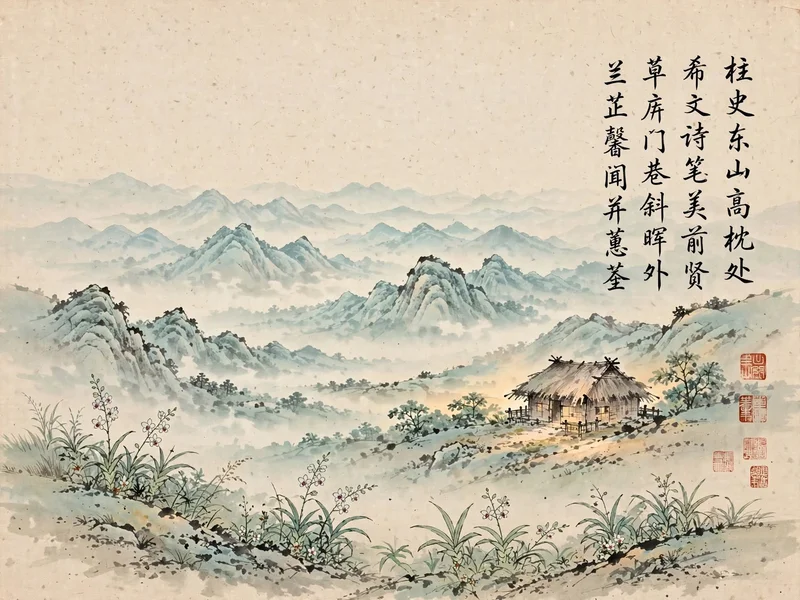 柱史东山高枕处
希文诗笔美前贤
草庌门巷斜晖外
兰芷馨闻并蕙荃